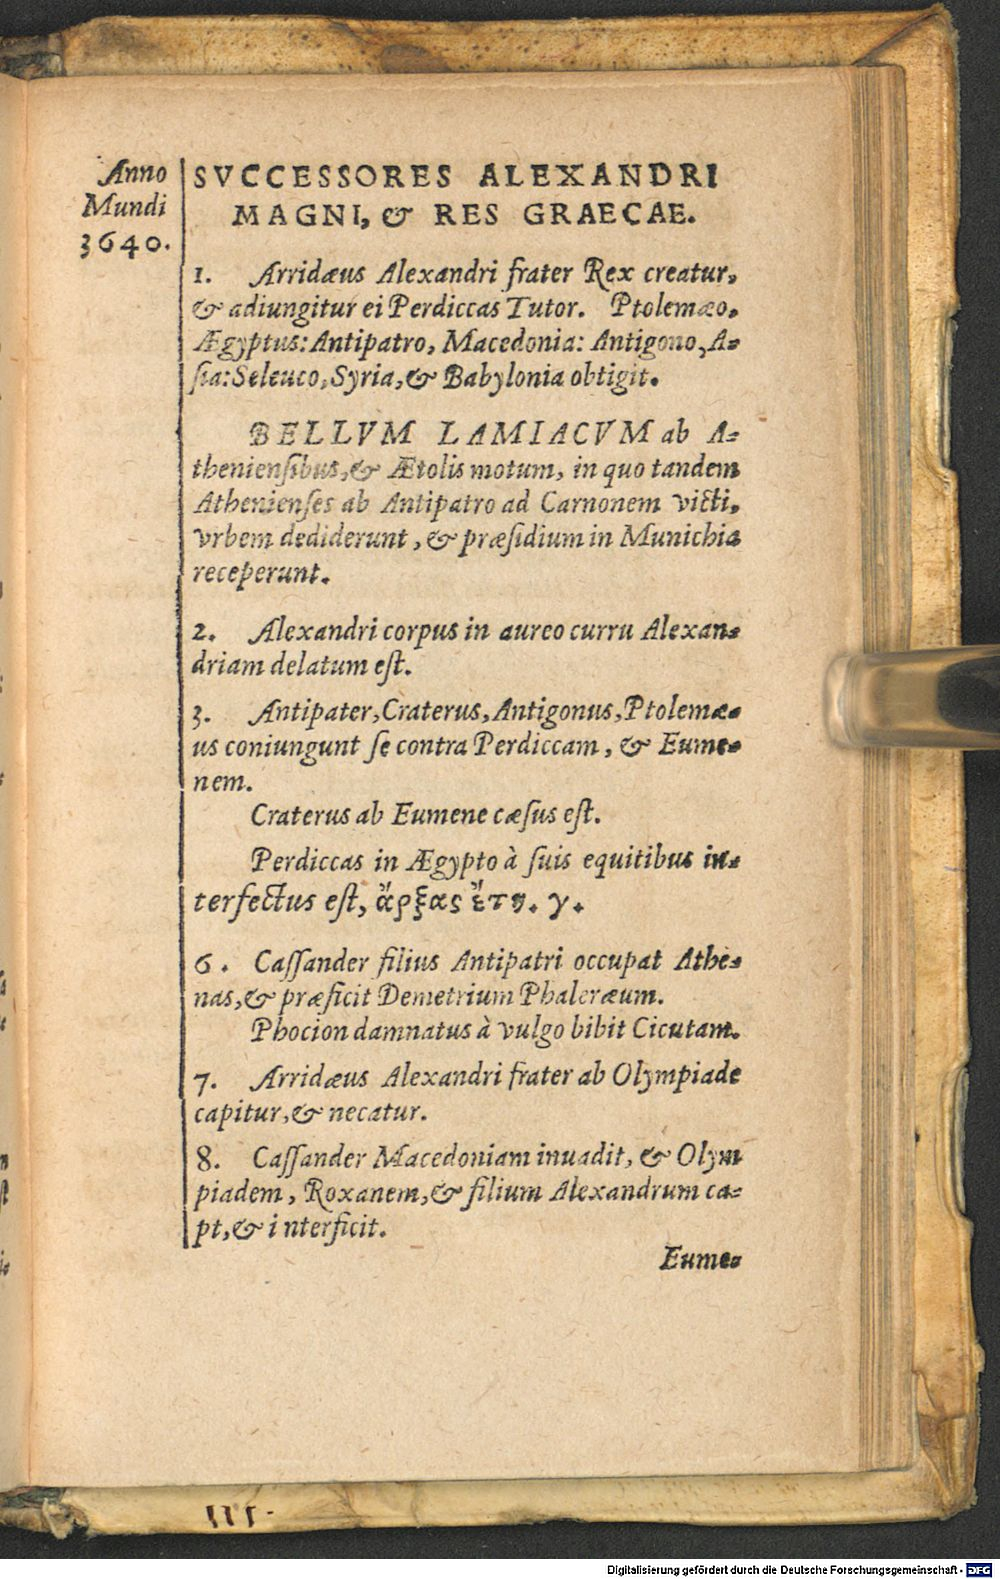 Anno
Mundi
3640.
SVCCESSORES ALEXANDRI
MAGNI, & RES GRAECAE.
1. Arridæus Alexandri frater Rex creatur,
& adiungitur ei Perdiccas Tutor. Ptolemæo,
Ægyptus: Antipatro, Macedonia: Antigono, A-
ſia: Seleuco, Syria, & Babylonia obtigit.
BELLVM LAMIACVM ab A-
thenienſibus, & Ætolis motum, in quo tandem
Athenienſes ab Antipatro ad Carnonem victi,
vrbem dediderunt, & præſidium in Munichia
receperunt.
2. Alexandri corpus in aureo curru Alexan-
driam delatum eſt.
3. Antipater, Craterus, Antigonus, Ptolemæ-
us coniungunt ſe contra Perdiccam, & Eume-
nem.
Craterus ab Eumene cæſus eſt.
Perdiccas in Ægypto à ſuis equitibus in-
terfectus eſt, ἄρξας ἔτη. γ.
6. Caſſander filius Antipatri occupat Athe-
nas, & præficit Demetrium Phaleræum.
Phocion damnatus à vulgo bibit Cicutam.
7. Arridæus Alexandri frater ab Olympiade
capitur, & necatur.
8. Caſſander Macedoniam inuadit, & Olym
piadem, Roxanem, & filium Alexandrum ca-
pt, & i nterficit.
Eume-
III.
Digitalisierung gefördert durch die Deutsche Forschungsgemeinschaft - DFG